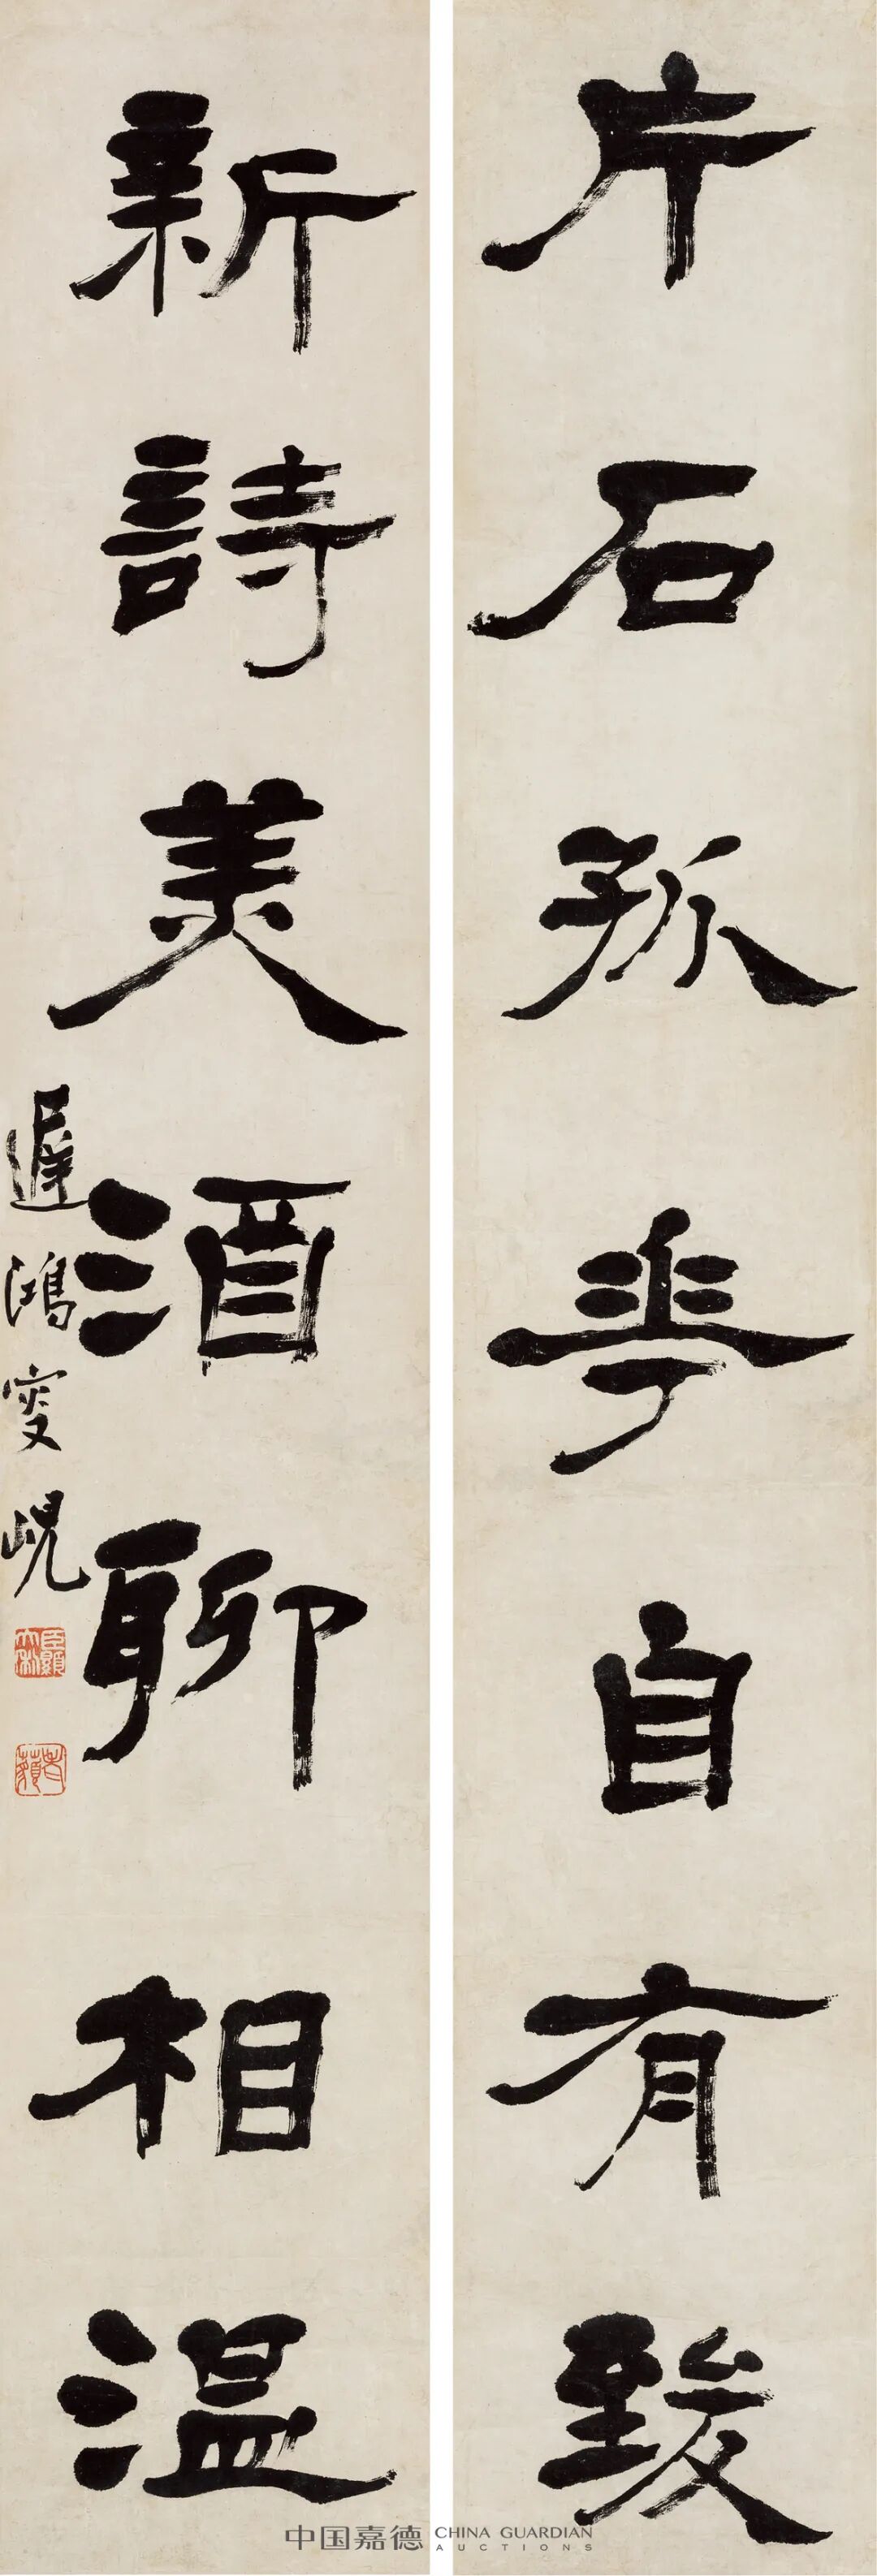 片石孤華自有致
新詩美酒聊相溫
遲鴻叟峴
臣顯大利
中国嘉德 CHINA GUARDIAN
AUCTIONS